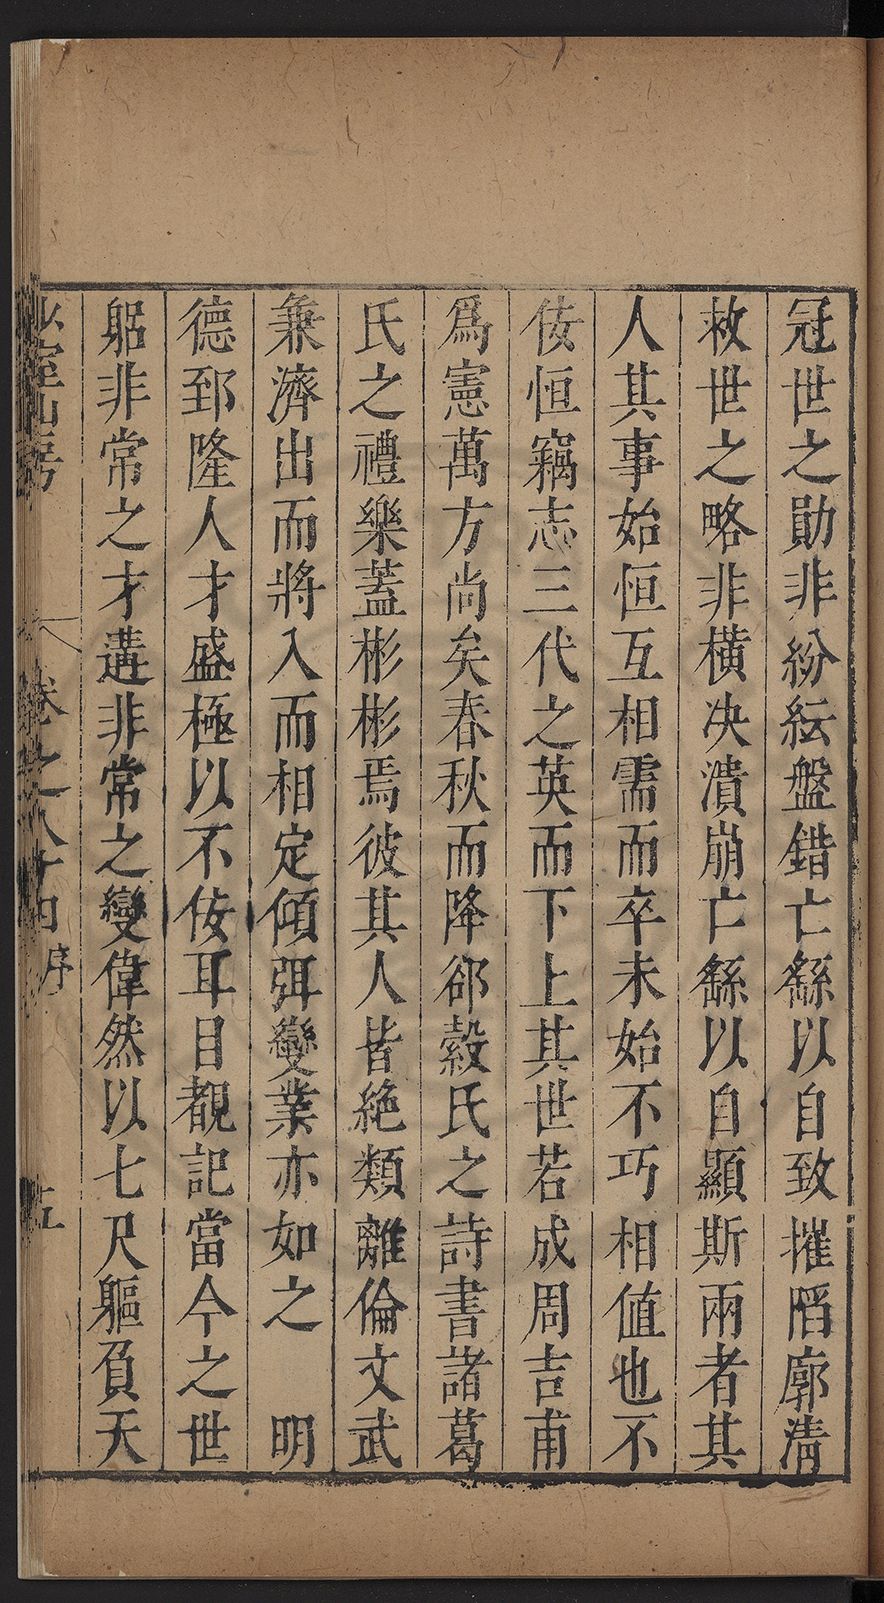 冠世之勛非紛紜盤錯亡繇以自致摧陷廓清
救世之略非橫决潰崩亡繇以自顯斯兩者其
人其事始恒互相需而卒未始不巧相值也不
佞恒竊志三代之英而下上其世若成周吉甫
爲憲萬方尚矣春秋而降郤縠氏之詩書諸葛
氏之禮樂蓋彬彬焉彼其人皆絶類離倫文武
兼濟出而將入而相定傾弭變業亦如之　明
德郅隆人才盛極以不佞耳目覩記當今之世
躳非常之才遘非常之變偉然以七尺軀負天
室山房　卷之八十四序　五